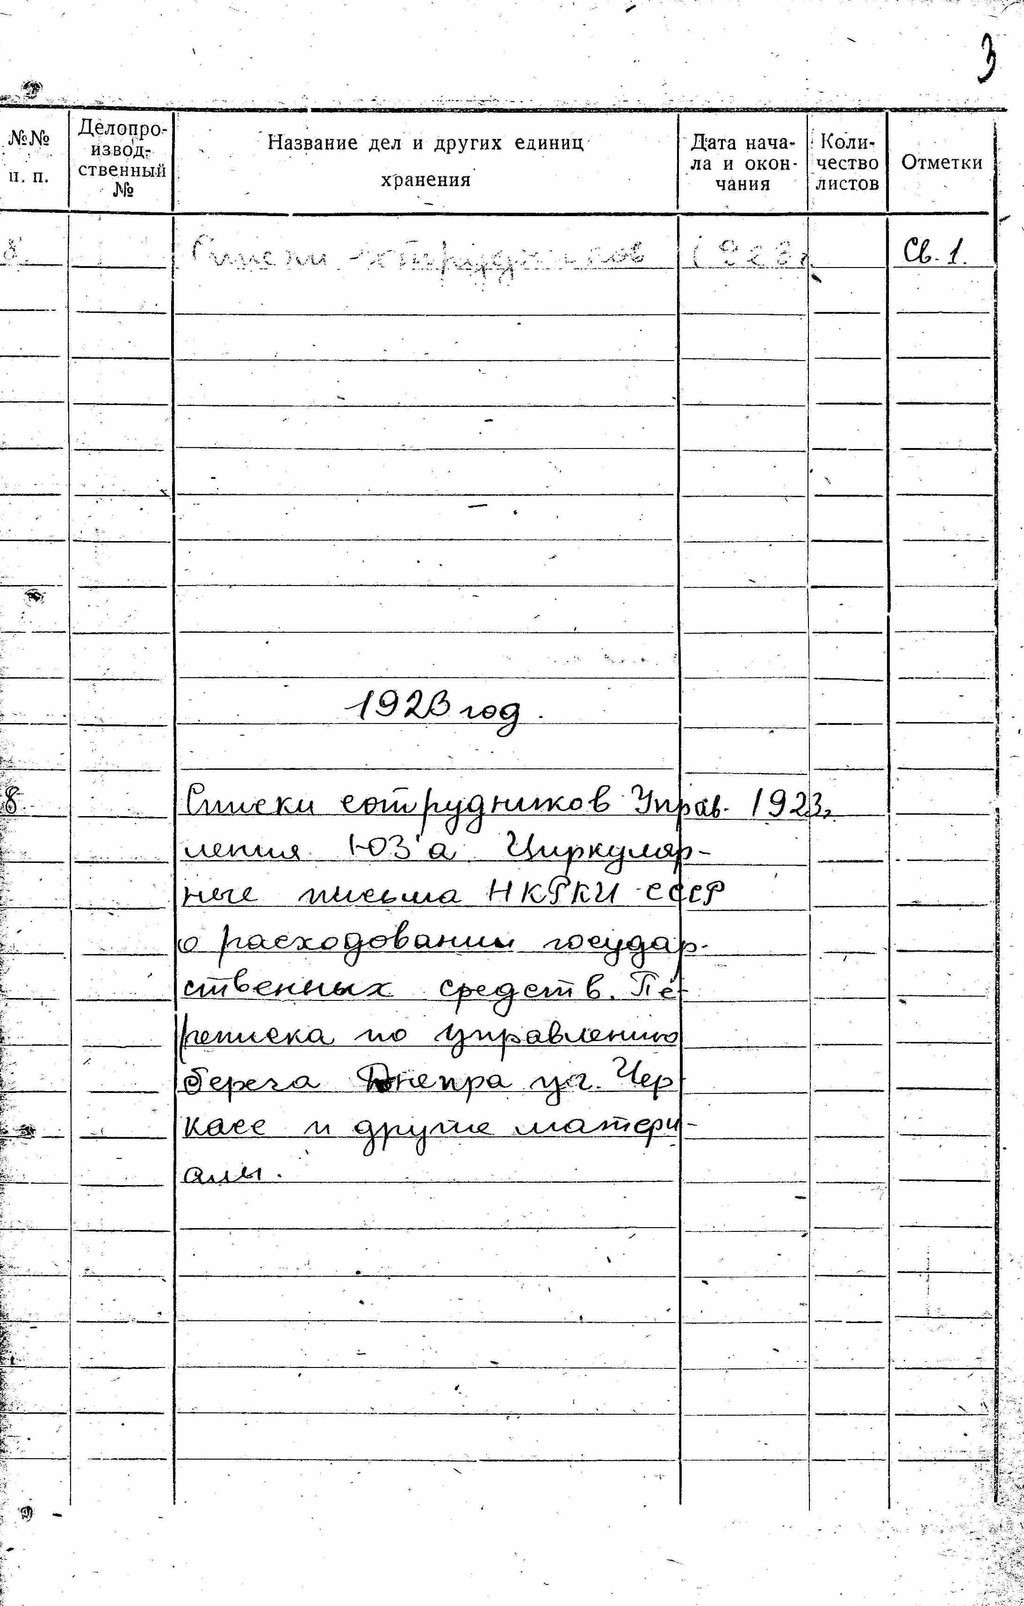 3
№№ п. п.
Делопро-
извод-
ственный
№
Название дел и других единиц
хранения
Дата нача-
ла и окон-
чания
Коли-
чество
листов
Отметки
8 Списки сотрудников 1923г. Св. 1.
1923 год.
8 Списки сотрудников Управ- 1923г.
ления ЮЗ'а Циркуляр-
ные письма НКРКИ СССР
о расходовании государ-
ственных средств. Пе-
реписка по управлению
берега Днепра у г. Чер
касс и другие матери-
алы.